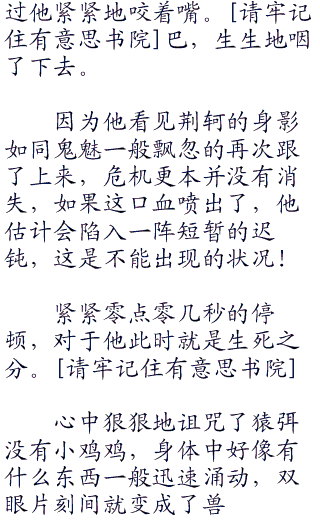 过他紧紧地咬着嘴。[请牢记
住有意思书院]巴，生生地咽
了下去。
因为他看见荆轲的身影
如同鬼魅一般飘忽的再次跟
了上来，危机更本并没有消
失，如果这口血喷出了，他
估计会陷入一阵短暂的迟
钝，这是不能出现的状况！
紧紧零点零几秒的停
顿，对于他此时就是生死之
分。[请牢记住有意思书院]
心中狠狠地诅咒了猿弭
没有小鸡鸡，身体中好像有
什么东西一般迅速涌动，双
眼片刻间就变成了兽